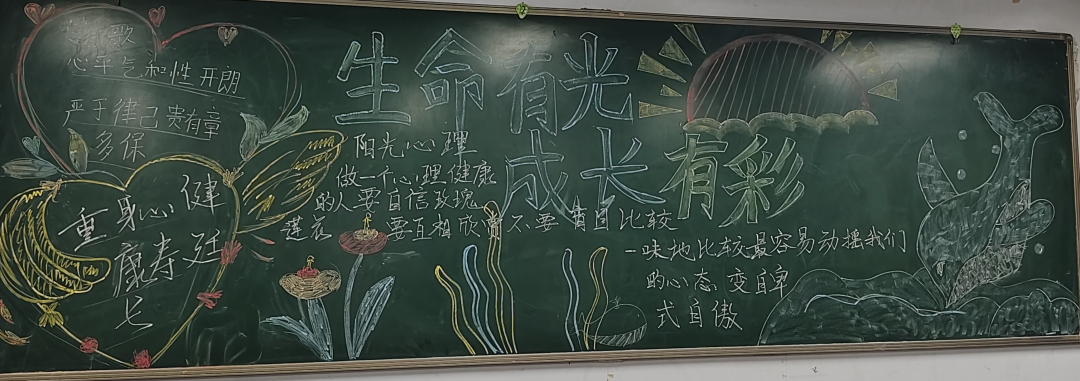 歌
心平气和性开朗
严于律己贵有章
多保
重身心健
康寿廷
七
生命有光
成长有彩
阳光心理
做一个心理健康
的人要自信玫瑰
莲花 要互相欣赏不要盲目比较
一味地比较最容易动摇我们
的心态变自卑
式自傲